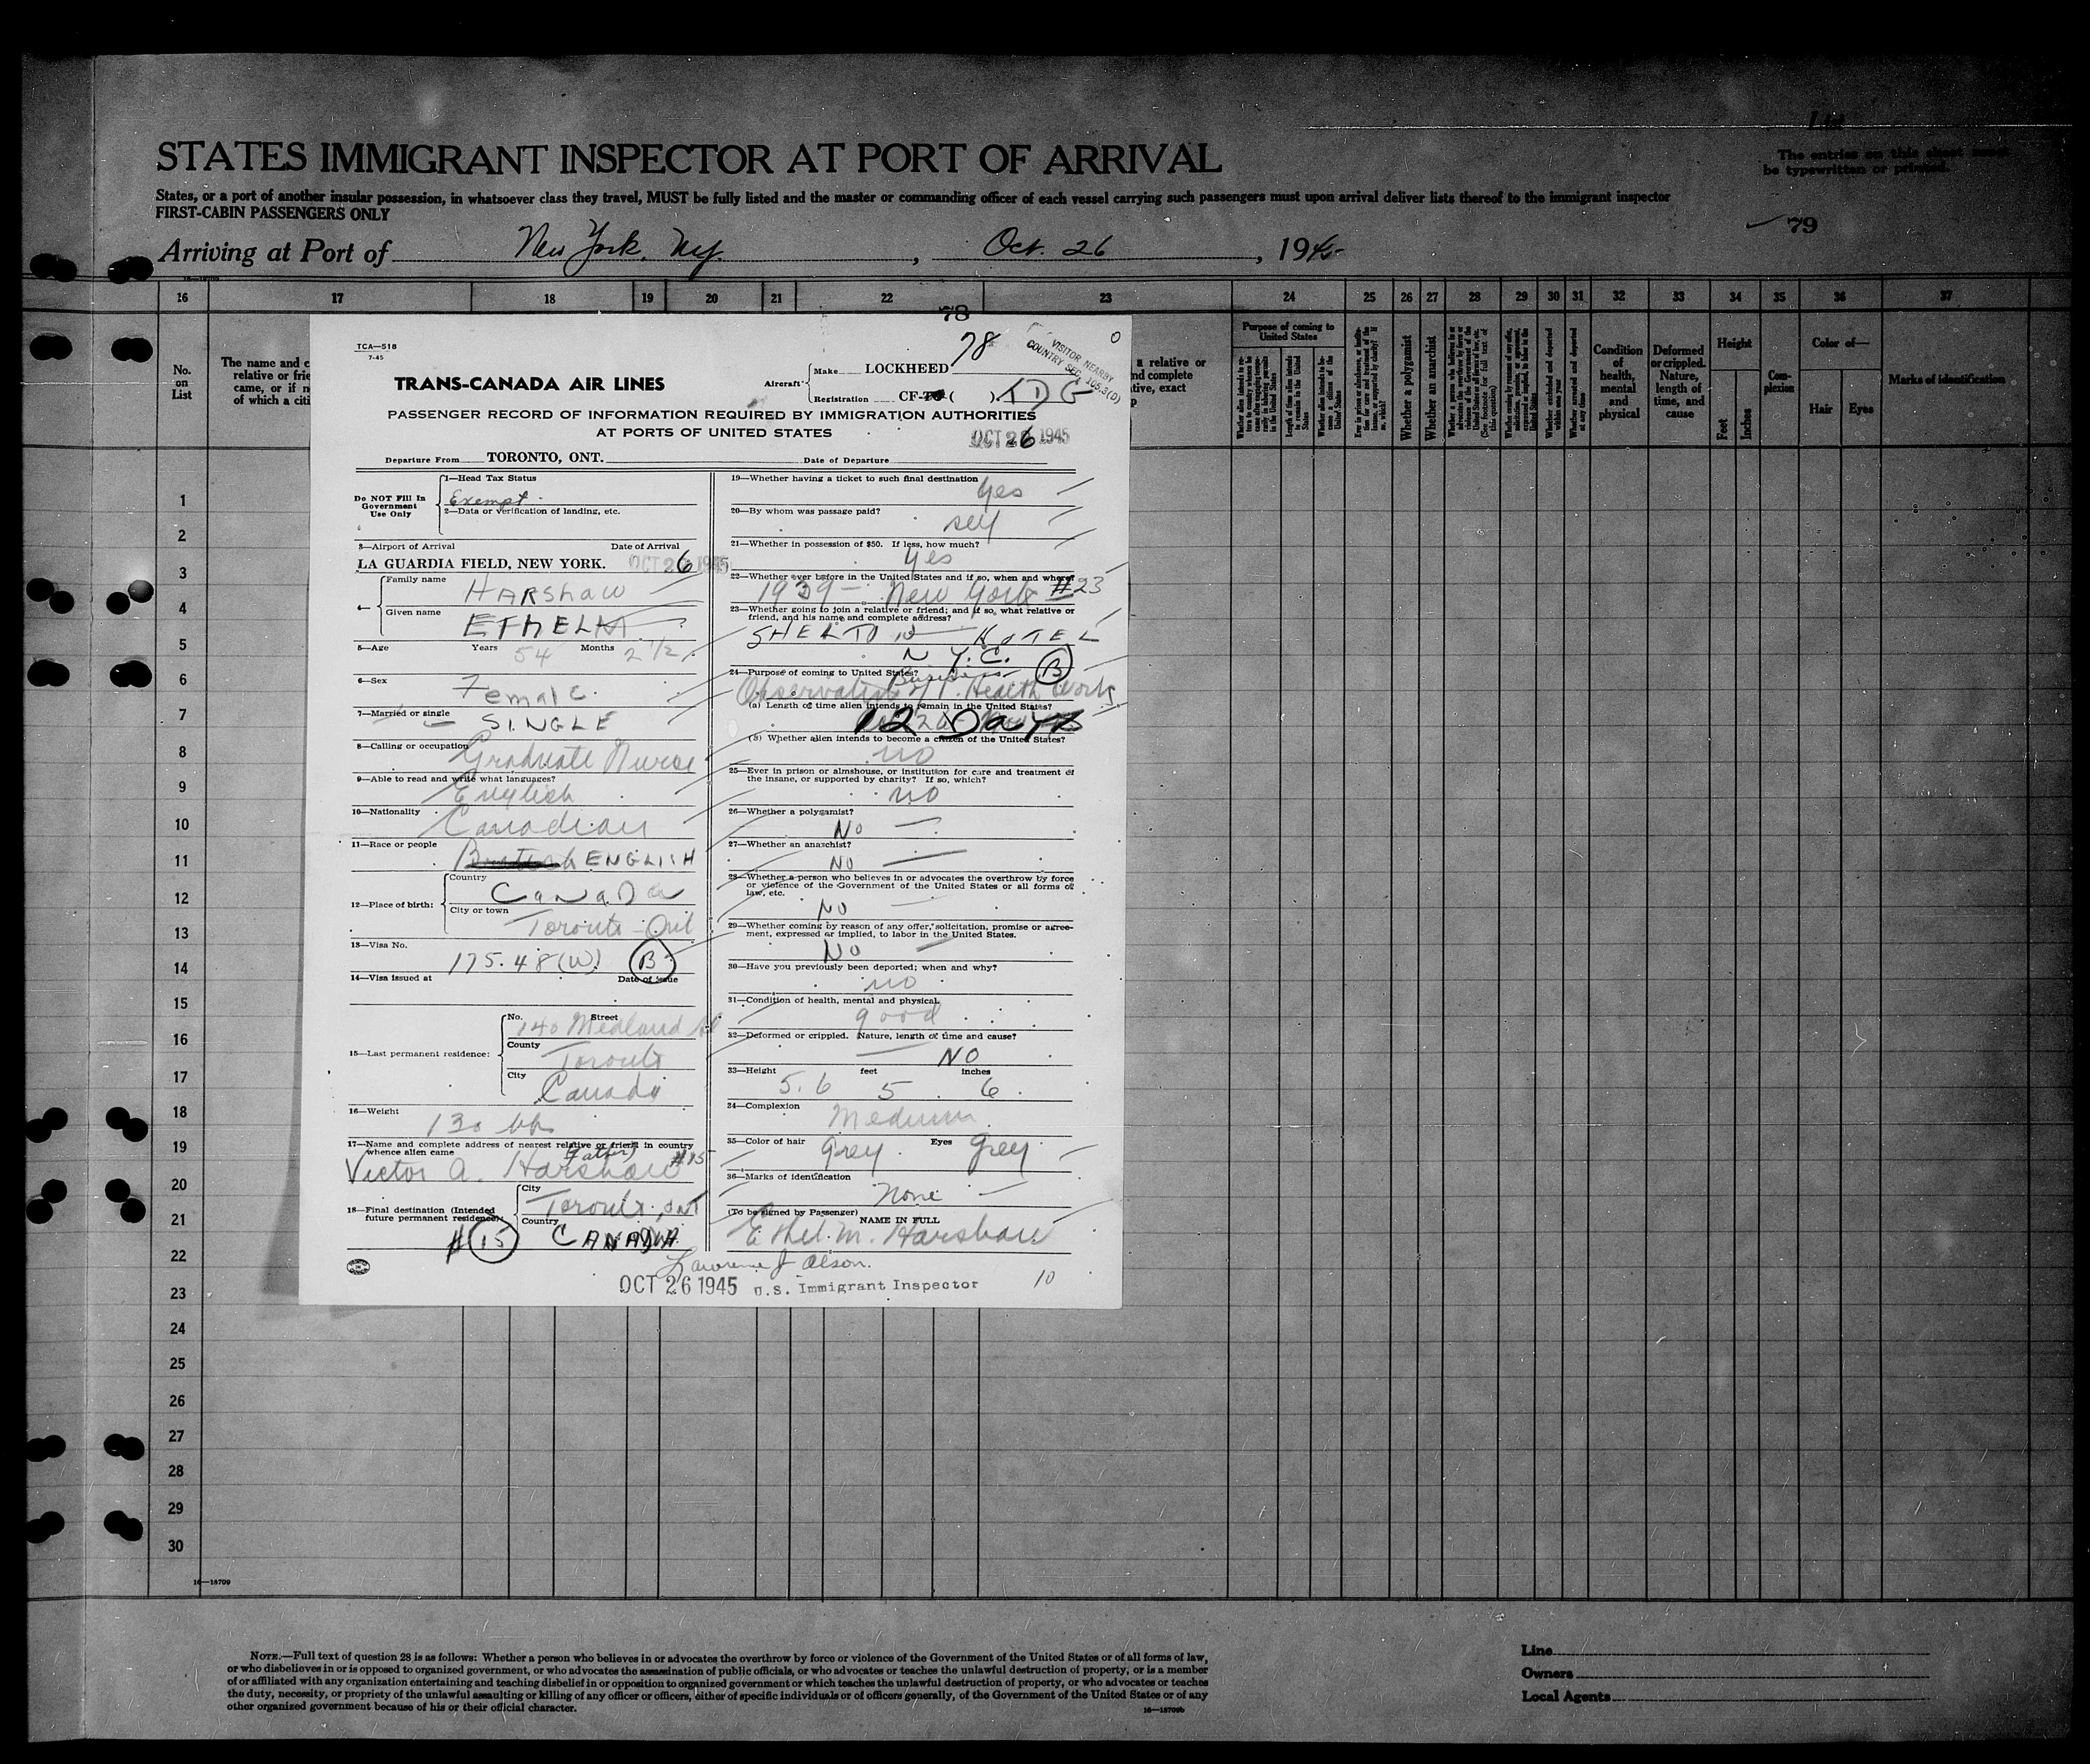 List
The entries on this sheet must
be typewritten or printed.
STATES IMMIGRANT INSPECTOR AT PORT OF ARRIVAL
States, or a port of another insular possession, in whatsoever class they travel, MUST be fully listed and the master or commanding officer of each vessel carrying such passengers must upon arrival deliver lists thereof to the immigrant inspector
FIRST-CABIN PASSENGERS ONLY
79
Arriving at Port of New York, Ny. , Oct. 26 , 1945
16—18709
16 17 18 19 20 21 22 23 24 25 26 27 28 29 30 31 32 33 34 35 36 37
78
No.
on
List
The name and c
relative or frie
came, or if n
of which a citi
a relative or
nd complete
tive, exact
p
Purpose of coming to
United States
Whether a polygamist
Whether an anarchist
Condition
of
health,
mental
and
physical
Deformed
or crippled.
Nature,
length of
time, and
cause
Height
Feet
Inches
Com-
plexion
Color of—
Hair
Eyes
Marks of identification
TCA—518
7-45
78
0
VISITOR NEARBY
COUNTRY SEC. 105.3(D)
TRANS-CANADA AIR LINES
Aircraft
Make LOCKHEED
Registration CF-T ( ) TDG
PASSENGER RECORD OF INFORMATION REQUIRED BY IMMIGRATION AUTHORITIES
AT PORTS OF UNITED STATES
OCT 26 1945
Departure From TORONTO, ONT. Date of Departure
Do NOT Fill In
Government
Use Only
1—Head Tax Status
Exempt
2—Data or verification of landing, etc.
3—Airport of Arrival Date of Arrival
LA GUARDIA FIELD, NEW YORK. OCT 26 1945
4— Family name HARShaw
Given name EThEL M
5—Age Years 54 Months 2 1/2
6—Sex Female.
7—Married or single SINGLE
8—Calling or occupation Graduate Nurse
9—Able to read and write what languages?
English
10—Nationality Canadian
11—Race or people British ENGLISH
12—Place of birth: Country CANADA
City or town Toronto - Ont
13—Visa No. 175.48 (W) B
14—Visa issued at Date of issue
15—Last permanent residence:
No. Street 140 Medland
County Toronto
City Canada
16—Weight 130 lbs
17—Name and complete address of nearest relative or friend in country
whence alien came
(father)
Victor A. Harshaw #15
18—Final destination (Intended
future permanent residence):
City Toronto, Ont
Country CANADA
# 15
19—Whether having a ticket to such final destination yes
20—By whom was passage paid? self
21—Whether in possession of $50. If less, how much?
yes
22—Whether ever before in the United States and if so, when and where?
1939 - New York #23
23—Whether going to join a relative or friend; and if so, what relative or
friend, and his name and complete address?
SHELTON HOTEL
N.Y.C. B
24—Purpose of coming to United States? Business
Observation of P. Health Work
(a) Length of time alien intends to remain in the United States?
12 DaYs
(b) Whether alien intends to become a citizen of the United States?
no
25—Ever in prison or almshouse, or institution for care and treatment of
the insane, or supported by charity? If so, which?
no
26—Whether a polygamist?
No
27—Whether an anarchist?
No
28—Whether a person who believes in or advocates the overthrow by force
or violence of the Government of the United States or all forms of
law, etc.
No
29—Whether coming by reason of any offer, solicitation, promise or agree-
ment, expressed or implied, to labor in the United States.
No
30—Have you previously been deported; when and why?
no
31—Condition of health, mental and physical.
good
32—Deformed or crippled. Nature, length of time and cause?
NO
33—Height feet inches
5.6 5 6
34—Complexion Medium
35—Color of hair Grey Eyes Grey
36—Marks of identification
None
(To be signed by Passenger)
NAME IN FULL
Ethel. M. Harshaw
Lawrence J Olson.
OCT 26 1945 U.S. Immigrant Inspector 10
1
2
3
4
5
6
7
8
9
10
11
12
13
14
15
16
17
18
19
20
21
22
23
24
25
26
27
28
29
30
16—18709
NOTE.—Full text of question 28 is as follows: Whether a person who believes in or advocates the overthrow by force or violence of the Government of the United States or of all forms of law,
or who disbelieves in or is opposed to organized government, or who advocates the assassination of public officials, or who advocates or teaches the unlawful destruction of property, or is a member
of or affiliated with any organization entertaining and teaching disbelief in or opposition to organized government or which teaches the unlawful destruction of property, or who advocates or teaches
the duty, necessity, or propriety of the unlawful assaulting or killing of any officer or officers, either of specific individuals or of officers generally, of the Government of the United States or of any
other organized government because of his or their official character.
16—18709b
Line
Owners
Local Agents